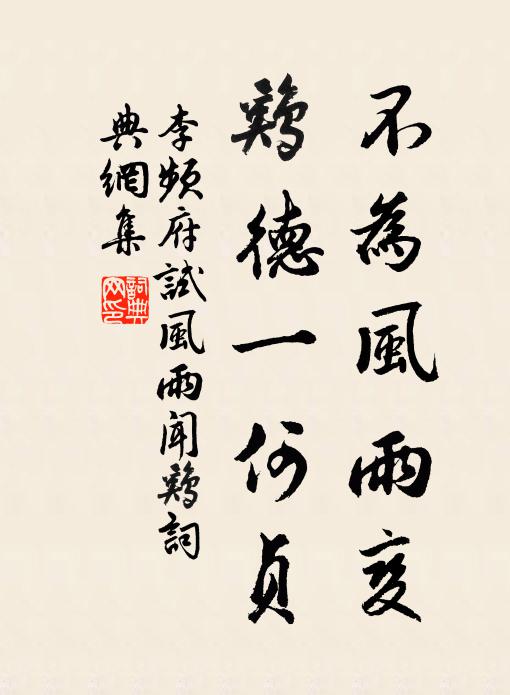 不為風雨变
鷄德一何貞
李頻府試風雨聞鷄詞
典網集
詞典
网印